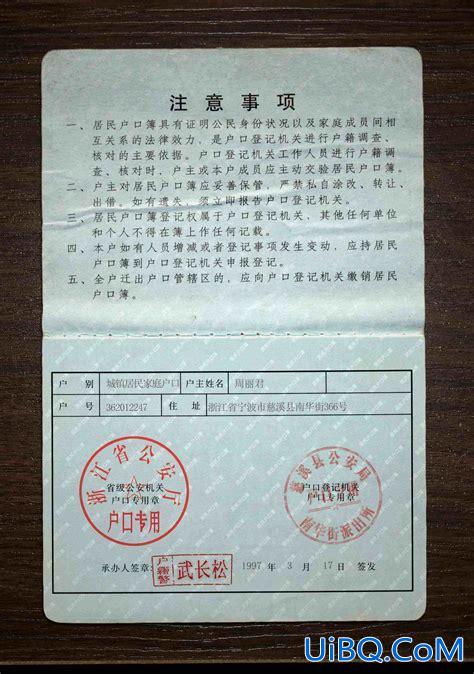 注意事项
一、居民户口簿具有证明公民身份状况以及家庭成员间相
互关系的法律效力，是户口登记机关进行户籍调查、
核对的主要依据。户口登记机关工作人员进行户籍调
查、核对时，户主或本户成员应主动交验居民户口簿。
二、户主对居民户口簿应妥善保管，严禁私自涂改、转让、
出借。如有遗失，须立即报告户口登记机关。
三、居民户口簿登记权属于户口登记机关，其他任何单位
和个人不得在簿上作任何记载。
四、本户如有人员增减或者登记事项发生变动，应持居民
户口簿到户口登记机关申报登记。
五、全户迁出户口管辖区的，应向户口登记机关缴销居民
户口簿。
户 别 城镇居民家庭户口 户主姓名 周丽君
户 号 362012247 住 址 浙江省宁波市慈溪县南华街366号
浙江省公安厅
省级公安机关
户口专用章
户口专用
慈溪县公安局
户口登记机关
户口专用章
南华街派出所
承办人签章： 户籍警 武长松 1997 年 3 月 17 日 签发
UiBQ.CoM